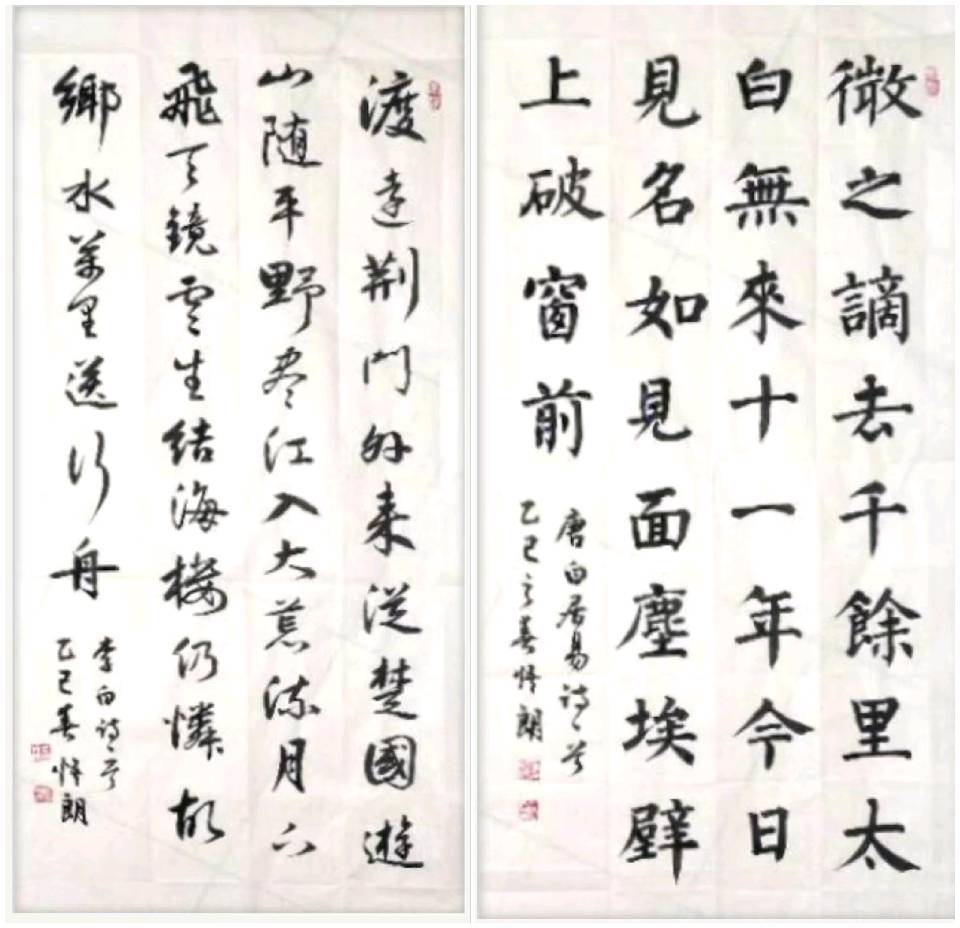 微之謫去千餘里太
白無來十一年今日
見名如見面塵埃壁
上破窗前
唐白居易诗一首
乙巳之春怿朗
渡遠荆門外来從楚國遊
山随平野尽江入大荒流月下
飛天鏡雲生結海楼仍憐故
鄉水萬里送行舟
李白诗一首
乙巳春怿朗